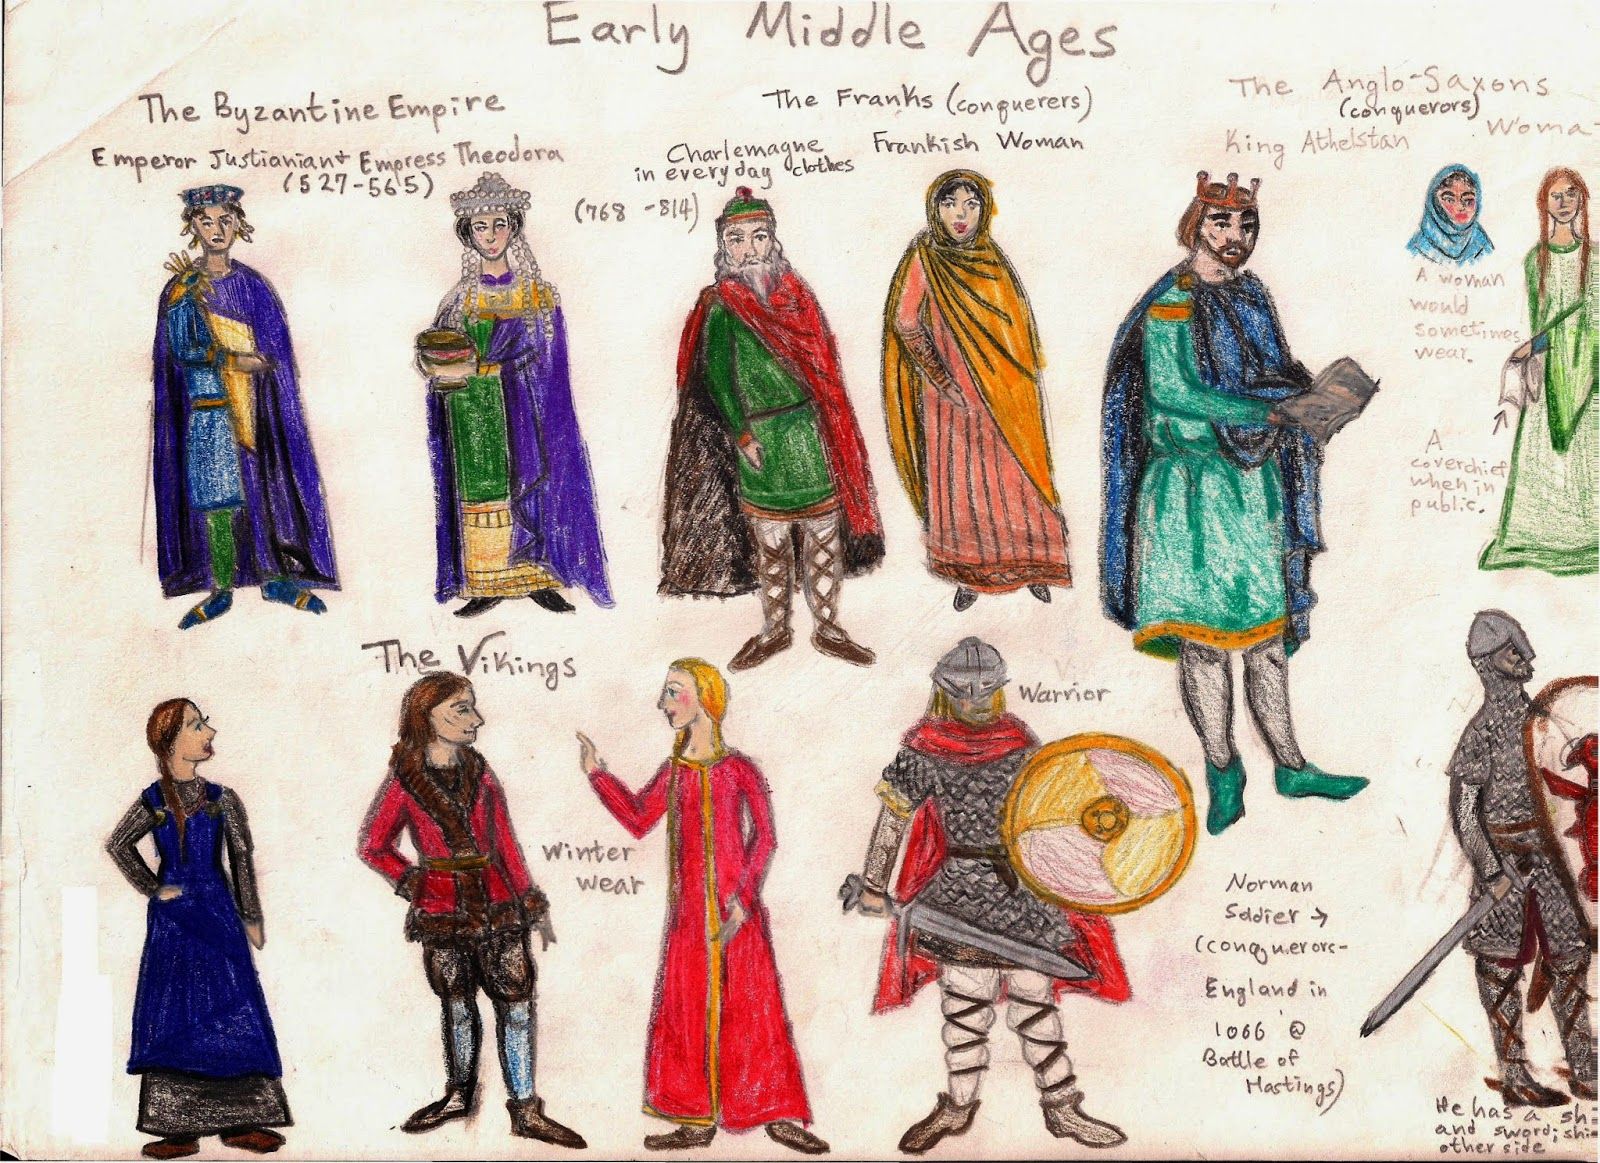 Early Middle Ages
The Byzantine Empire
Emperor Justianian + Empress Theodora
(527-565)
The Franks (conquerers)
Charlemagne
in everyday clothes
(768 -814)
Frankish Woman
The Anglo-Saxons
(conquerors)
King Athelstan
Woma
A woman
would
sometimes
wear.
A
coverchief
when in
public.
The Vikings
Winter
wear
Warrior
Norman
Soldier →
(conquerors-
England in
1066 @
Battle of
Hastings)
He has a
and sword;
other side